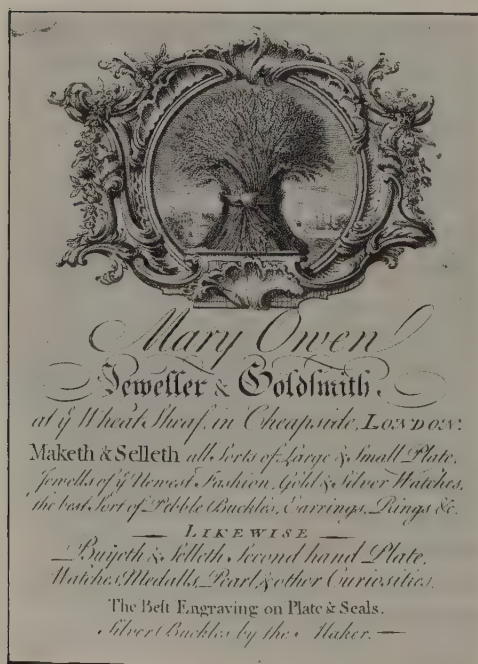 Mary Owen
Jeweller & Goldsmith.
at yͤ Wheat Sheaf, in Cheapside, LONDON:
Maketh & Selleth all Sorts of Large & Small Plate,
Jewells of yͤ Newest Fashion, Gold & Silver Watches,
the best Sort of Pebble Buckles, Earrings, Rings &c.
— LIKEWISE —
Buyeth & Selleth Second hand Plate,
Watches, Medalls, Pearl, & other Curiosities.
The Beſt Engraving on Plate & Seals.
Silver Buckles by the Maker. —